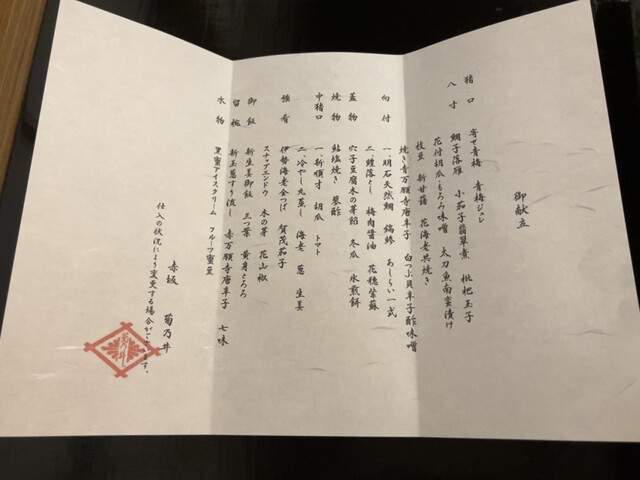 御献立
猪口 寄せ青梅 青梅ジュレ
八寸 鯛子落雁 小茄子翡翠煮 枇杷玉子
花付胡瓜・もろみ味噌 太刀魚南蛮漬け
枝豆 新甘藷 花海老共焼き
焼き青万願寺唐辛子 白つぶ貝辛子酢味噌
向付 一、明石天然鯛 縞鯵 あしらい一式
二、鱧落とし 梅肉醤油 花穂紫蘇
蓋物 穴子豆腐木の芽餡 冬瓜 氷煎餅
焼物 鮎塩焼き 蓼酢
中猪口 一、新順才 胡瓜 トマト
二、冷やし丸蒸し 海老 葱 生姜
強肴 伊勢海老金つば 賀茂茄子
スナップエンドウ 木の芽 花山椒
御飯 新生姜御飯 三つ葉 黄身とろろ
留椀 新玉葱すり流し 赤万願寺唐辛子 七味
水物 黒蜜アイスクリーム フルーツ蜜豆
赤坂 菊乃井
仕入の状況により変更する場合がございます。
菊乃井